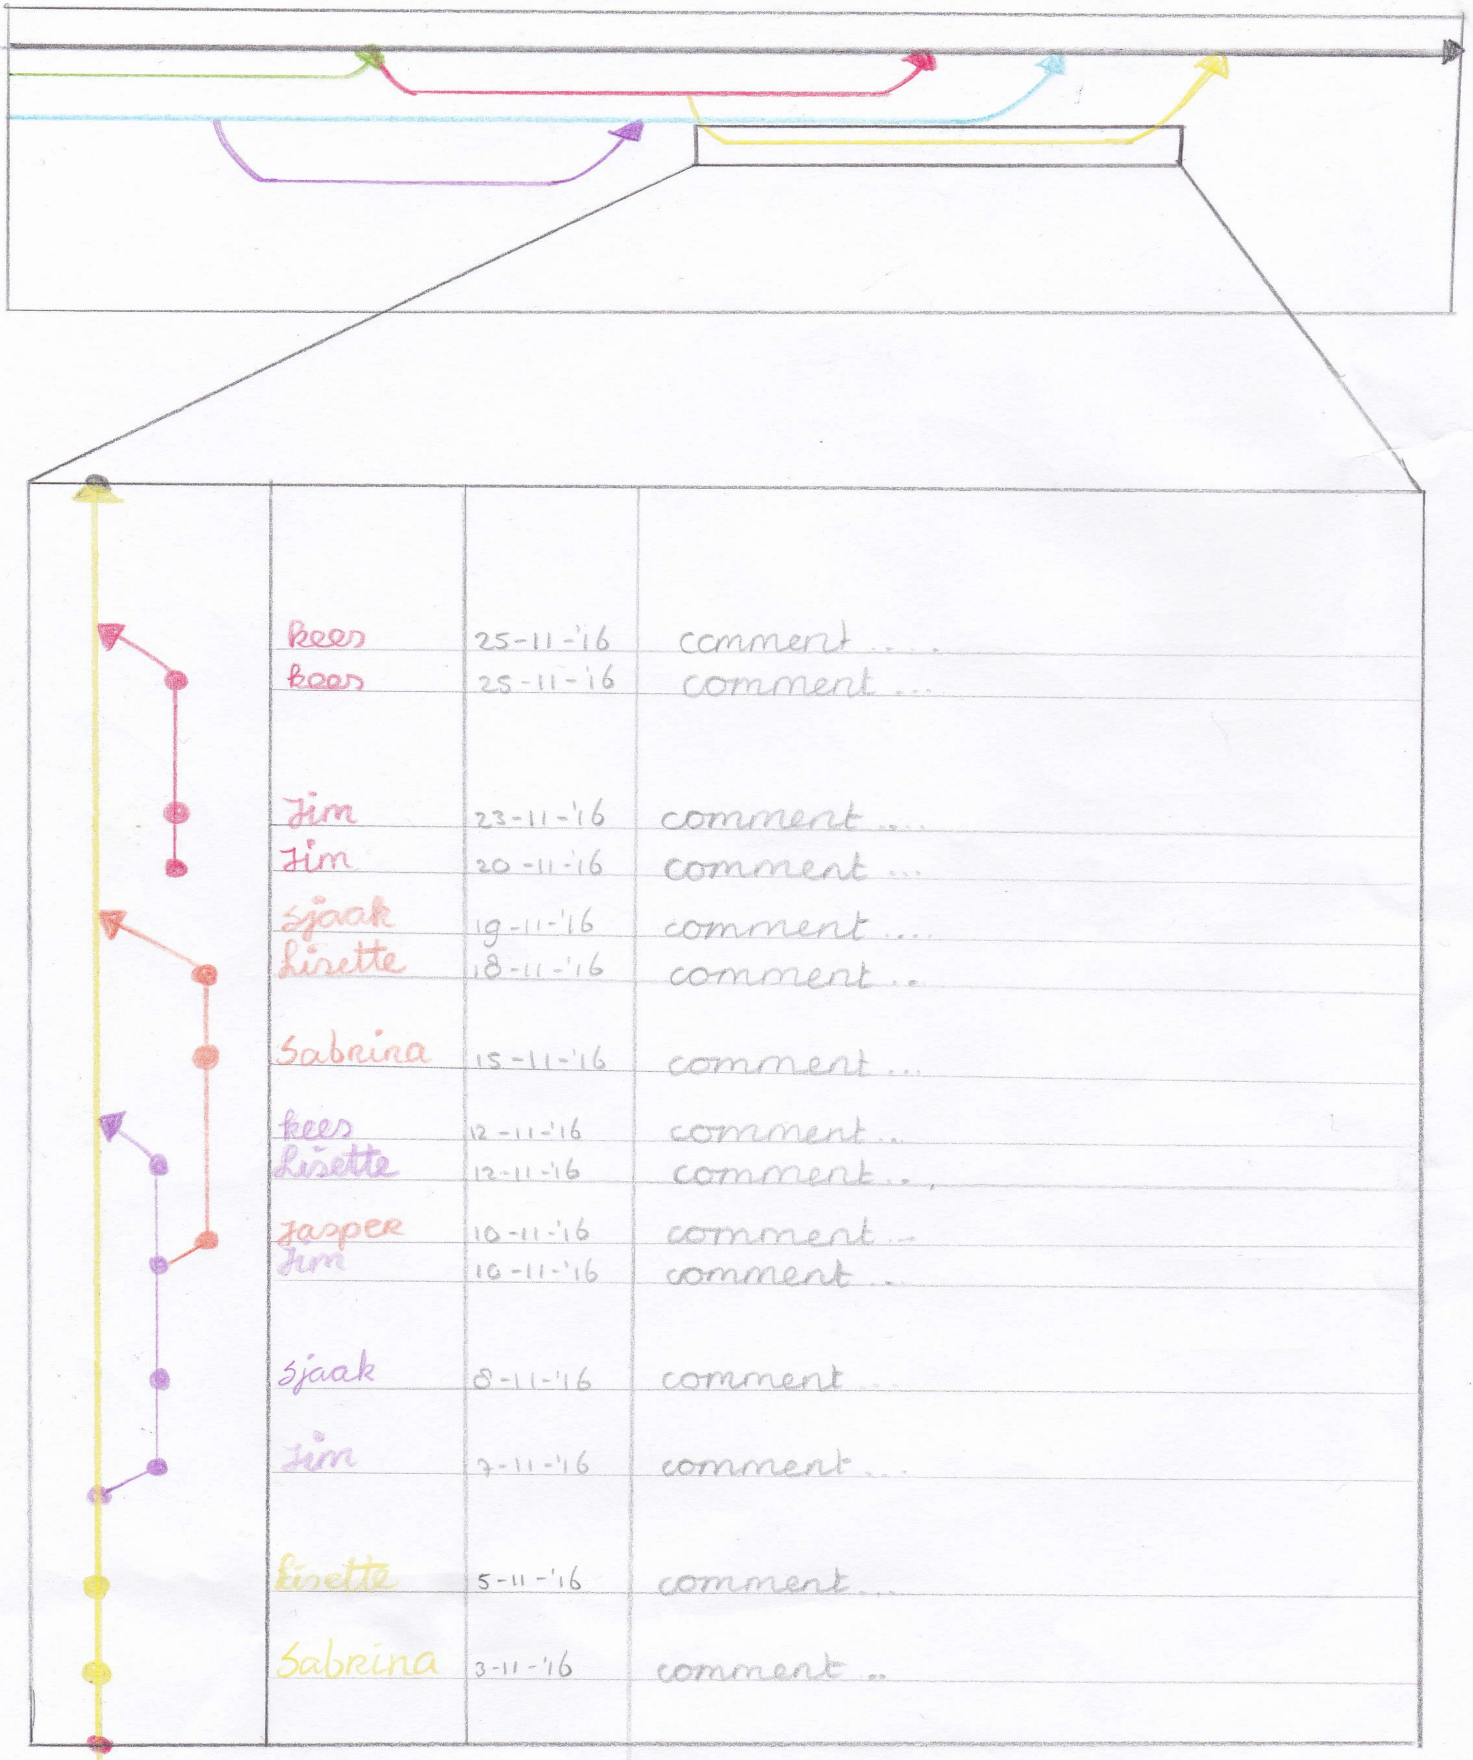 kees 25-11-'16 comment ....
kees 25-11-'16 comment ...
Jim 23-11-'16 comment ....
Jim 20-11-'16 comment ...
Sjaak 19-11-'16 comment ....
Lisette 18-11-'16 comment ..
Sabrina 15-11-'16 comment ...
kees 12-11-'16 comment ..
Lisette 12-11-'16 comment ...
Jasper 10-11-'16 comment ..
Jim 10-11-'16 comment ..
Sjaak 8-11-'16 comment ..
Jim 7-11-'16 comment ...
Lisette 5-11-'16 comment ...
Sabrina 3-11-'16 comment ..